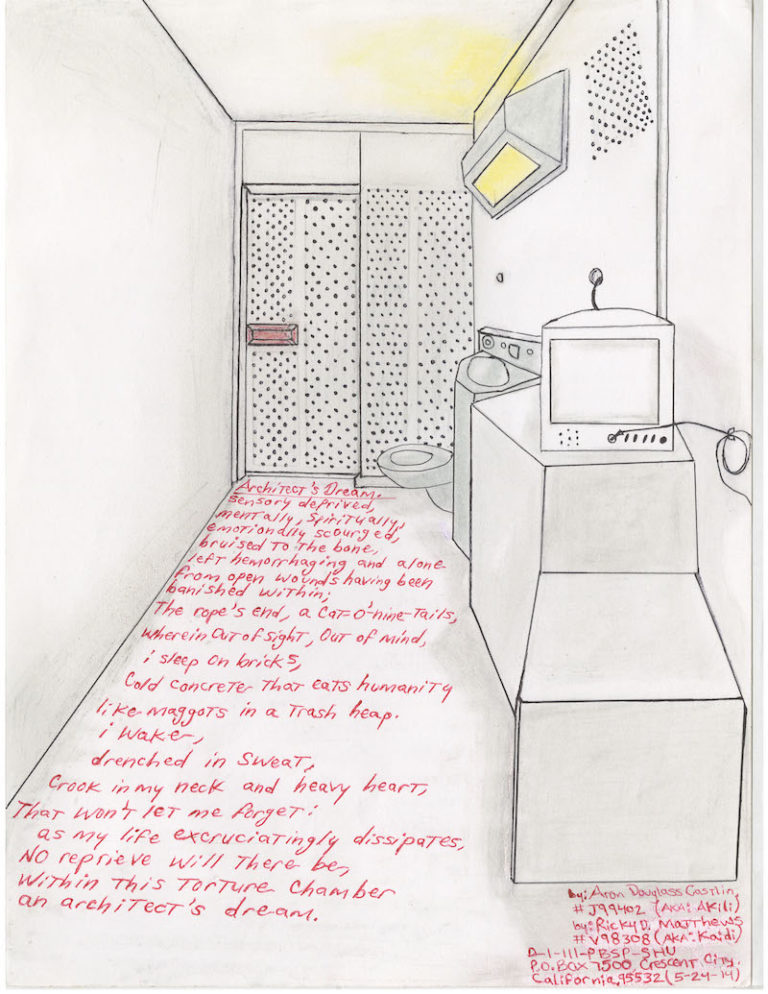 Architect's Dream.
Sensory deprived,
mentally, Spiritually,
emotionally scourged,
bruised to the bone,
left hemorrhaging and alone
From open wounds having been
banished within;
The rope's end, a Cat-O'-nine-Tails,
wherein Out of sight, Out of mind,
i sleep on bricks,
Cold concrete That eats humanity
like maggots in a Trash heap.
i wake,
drenched in sweat,
Crook in my neck and heavy heart,
That won't let me forget:
as my life excruciatingly dissipates,
NO reprieve will There be,
Within This Torture Chamber
an architect's dream.
by: Aron Douglass Castlin,
# J99402 (AKA: Akili)
by: Ricky D. Matthews
# V98308 (AKA: Kaidi)
D-1-111-PBSP-SHU
P.O. Box 7500 Crescent City,
California, 95532 (5-24-14)